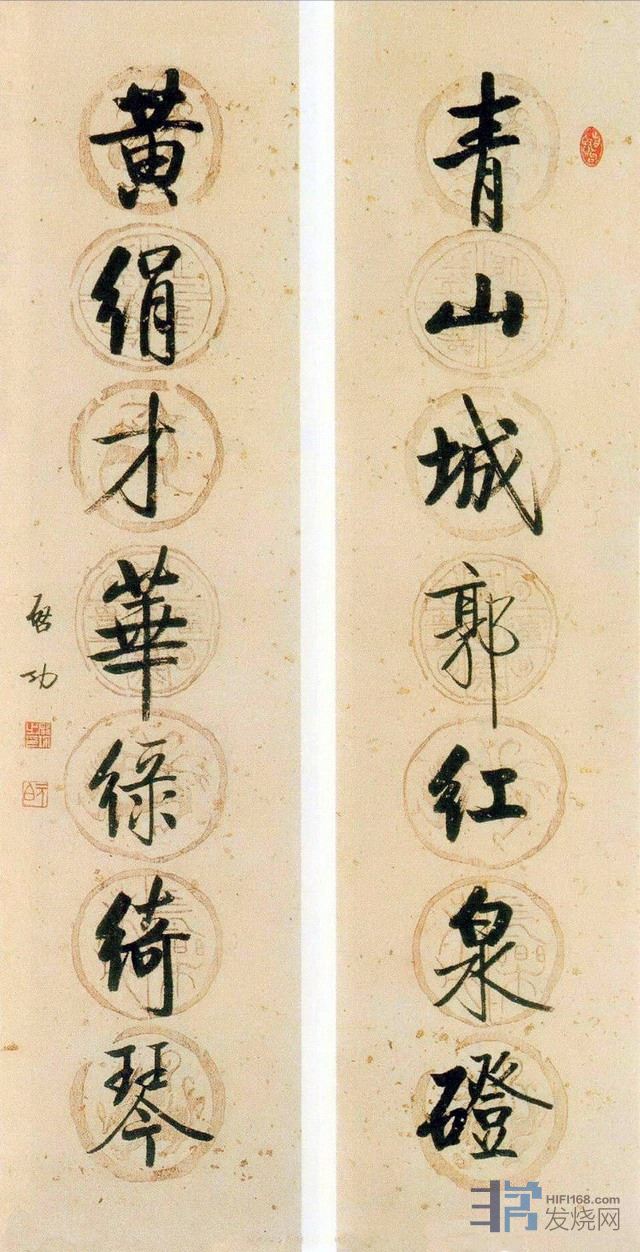 青山城郭红泉磴
黄绢才華绿绮琴
启功
HIFI168.com
发烧网